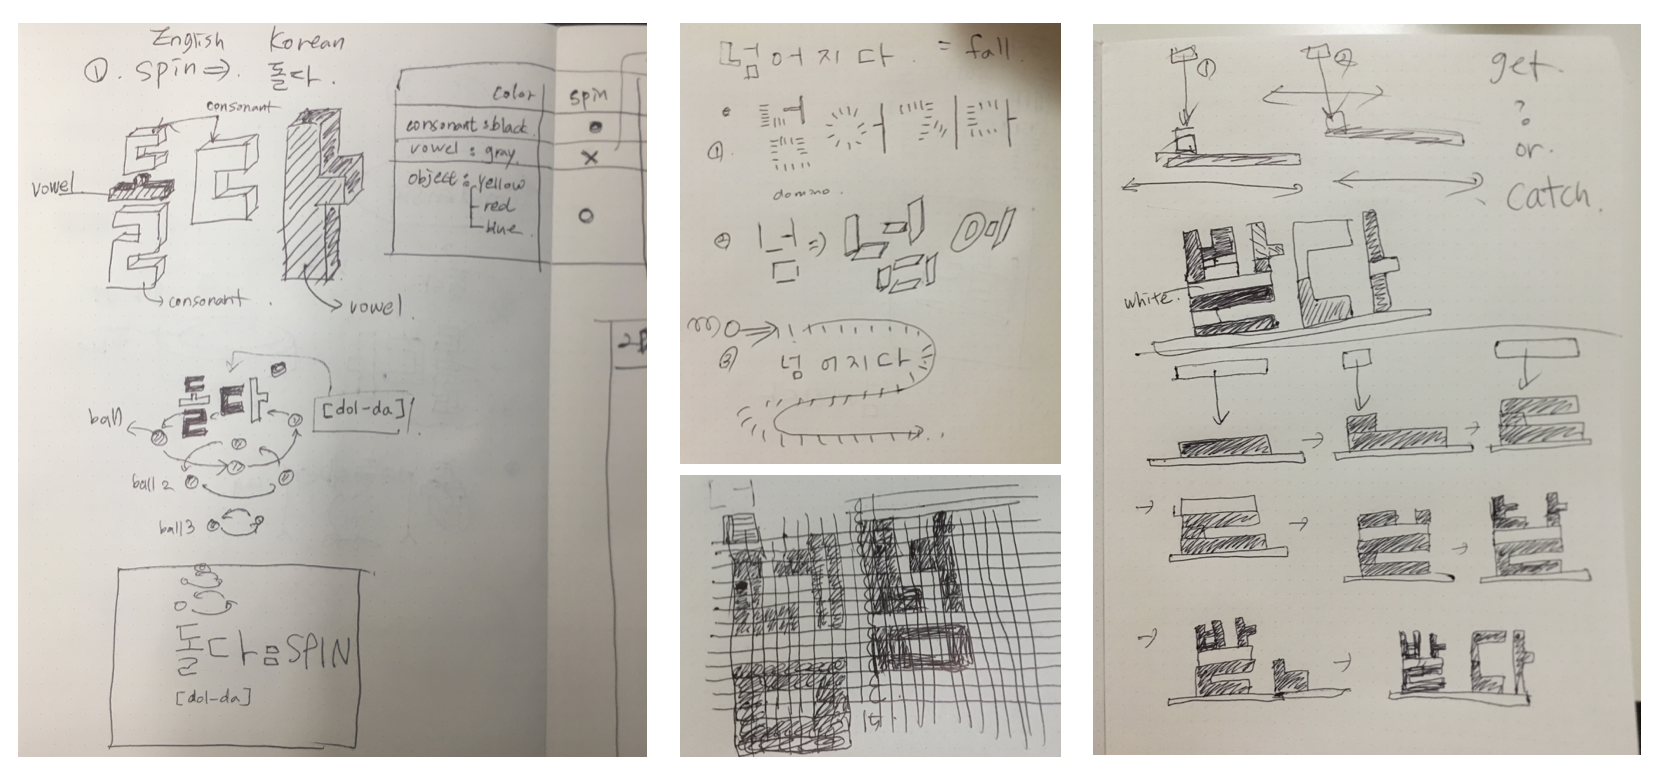 English Korean
①. spin ⇒. 돌다.
consonant
vowel
consonant.
vowel.
color spin
consonant : black ●
vowel : gray ×
object : yellow
red
blue. ○
[dol-da]
ball
ball 2
ball 3
돌다 = SPIN
[dol-da]
넘어지다. = fall.
넘어지다
①.
domino.
② 넘 ⇒ 넘 어
③
넘 어지다
너
① ② get.
?
or.
catch.
받다
white.
받다